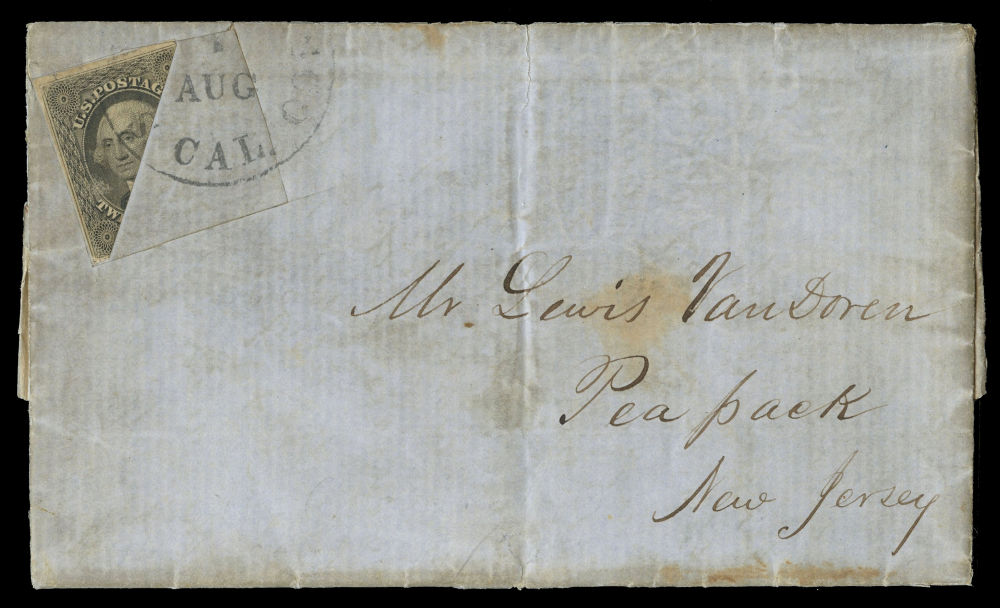 U.S. POSTAG
TW
AUG
CAL.
Mr. Lewis VanDoren
Peapack
New Jersey